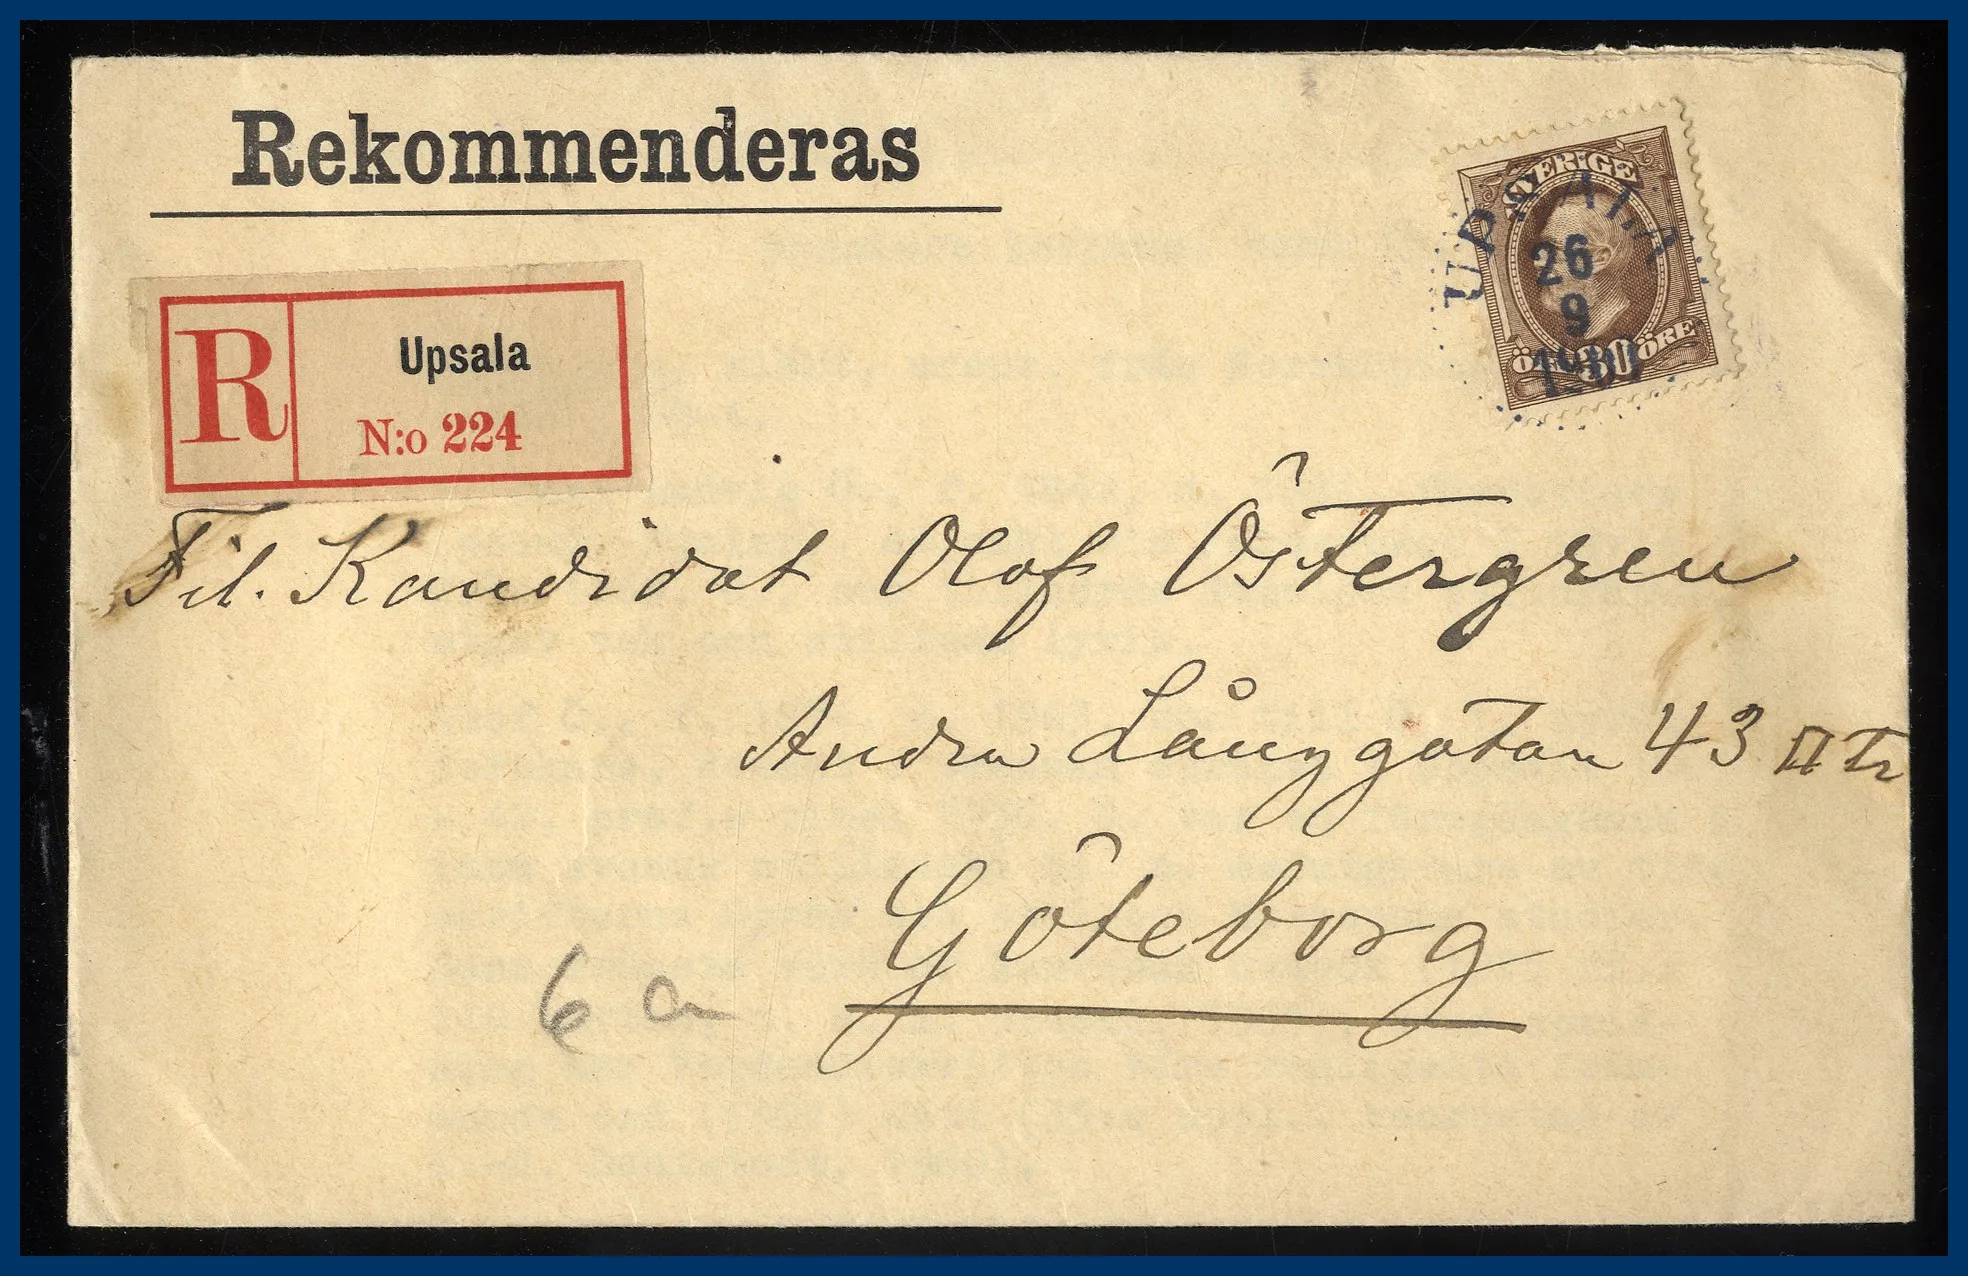 Rekommenderas
R
Upsala
N:o 224
SVERIGE
26
9
ÖRE 30 ÖRE
Fil. Kandidat Olof Östergren
Andra Långgatan 43 II Tr
Göteborg
6